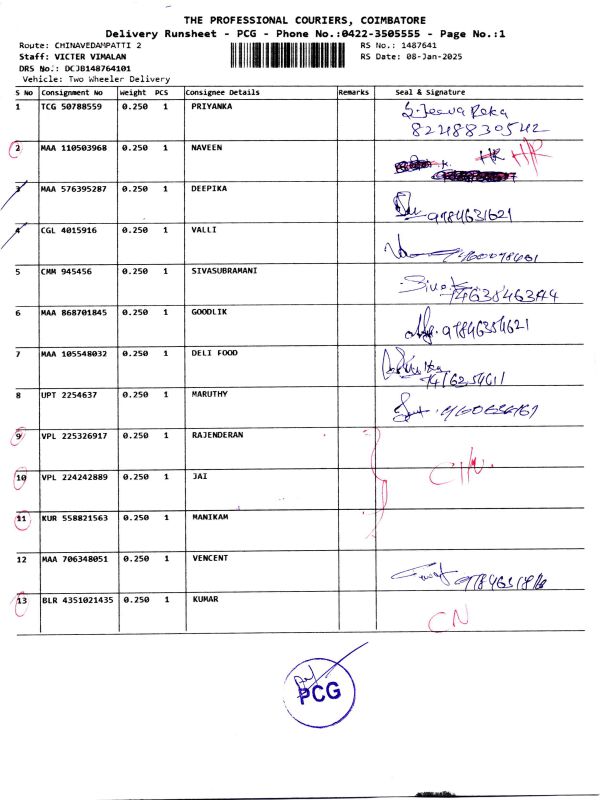 THE PROFESSIONAL COURIERS, COIMBATORE
Delivery Runsheet - PCG - Phone No.:0422-3505555 - Page No.:1
Route: CHINAVEDAMPATTI 2 RS No.: 1487641
Staff: VICTER VIMALAN RS Date: 08-Jan-2025
DRS No.: DCJB148764101
Vehicle: Two Wheeler Delivery
S No Consignment No Weight PCS Consignee Details Remarks Seal & Signature
1 TCG 50788559 0.250 1 PRIYANKA
8248830542
2 MAA 110503968 0.250 1 NAVEEN HR HR
3 MAA 576395287 0.250 1 DEEPIKA
9784631621
4 CGL 4015916 0.250 1 VALLI
5 CMM 945456 0.250 1 SIVASUBRAMANI
6 MAA 868701845 0.250 1 GOODLIK
97846354621
7 MAA 105548032 0.250 1 DELI FOOD
8 UPT 2254637 0.250 1 MARUTHY
9 VPL 225326917 0.250 1 RAJENDERAN
10 VPL 224242889 0.250 1 JAI
11 KUR 558821563 0.250 1 MANIKAM
12 MAA 706348051 0.250 1 VENCENT
13 BLR 4351021435 0.250 1 KUMAR
CN
PCG